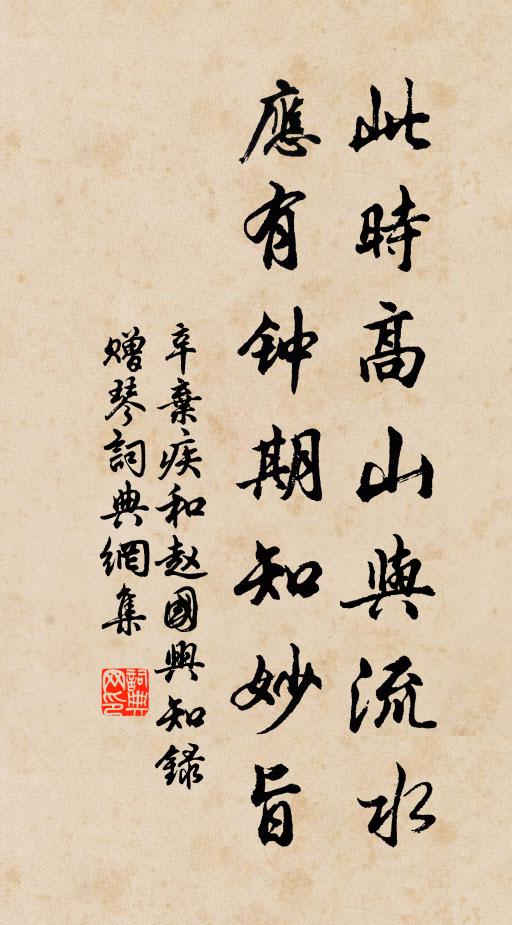 此時高山與流水
應有钟期知妙旨
辛棄疾和赵國興知録
贈琴詞典網集
詞典网印